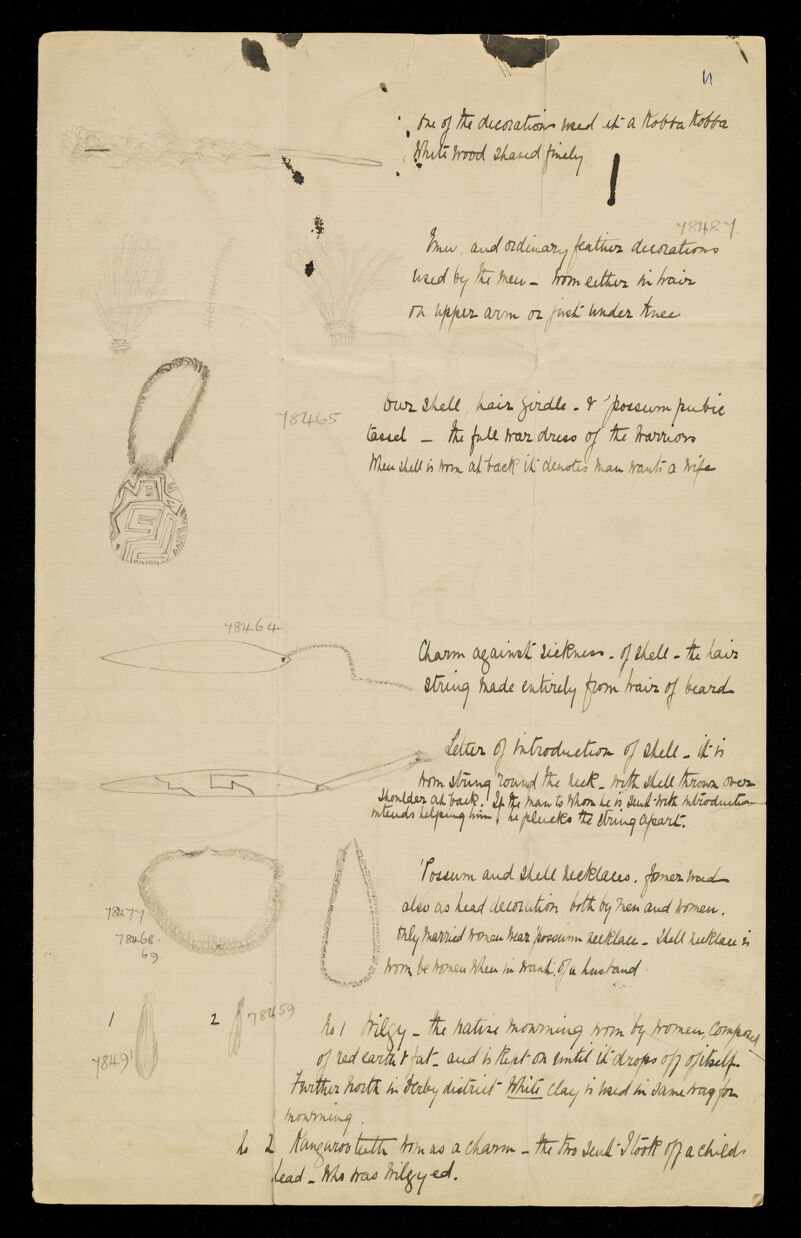 One of the decorations used at a Kobba Kobba
White wood shaved finely
78487
Emu, and ordinary feather decorations
used by the men – worn either in hair
on upper arm or just under knee
78465
Our shell, hair girdle – & 'possum pubic
tassel – the full war dress of the warriors
When shell is worn at back it denotes man wants a wife
78464
Charm against sickness – of shell – the hair
string made entirely from hair of beard
Letter of introduction of shell – it is
worn string 'round the neck – with shell thrown over
shoulder at back. If the man to whom he is sent with introduction
intends helping him, he plucks the string apart.
'Possum and shell necklaces. former used
also as head decoration both by men and women.
Only married women wear 'possum necklace – Shell necklace is
worn be women when in want of a husband
78477
78468.
69.
1
78491
2
78459
No 1 Wilgy – the native mourning worn by women, composed
of red earth & fat – and is kept on until it drops off of itself.
Further North in Derby district White clay is used in same way for
mourning.
No 2 Kangaroo teeth worn as a charm – the two sent I took off a childs
head – who was wilgyed.